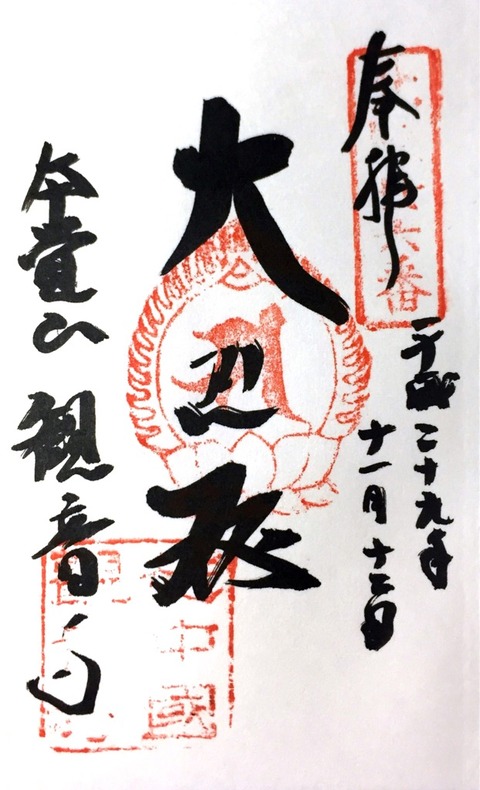 奉拝
平成二十九年
十一月十二日
大悲殿
観音寺
六番
中國